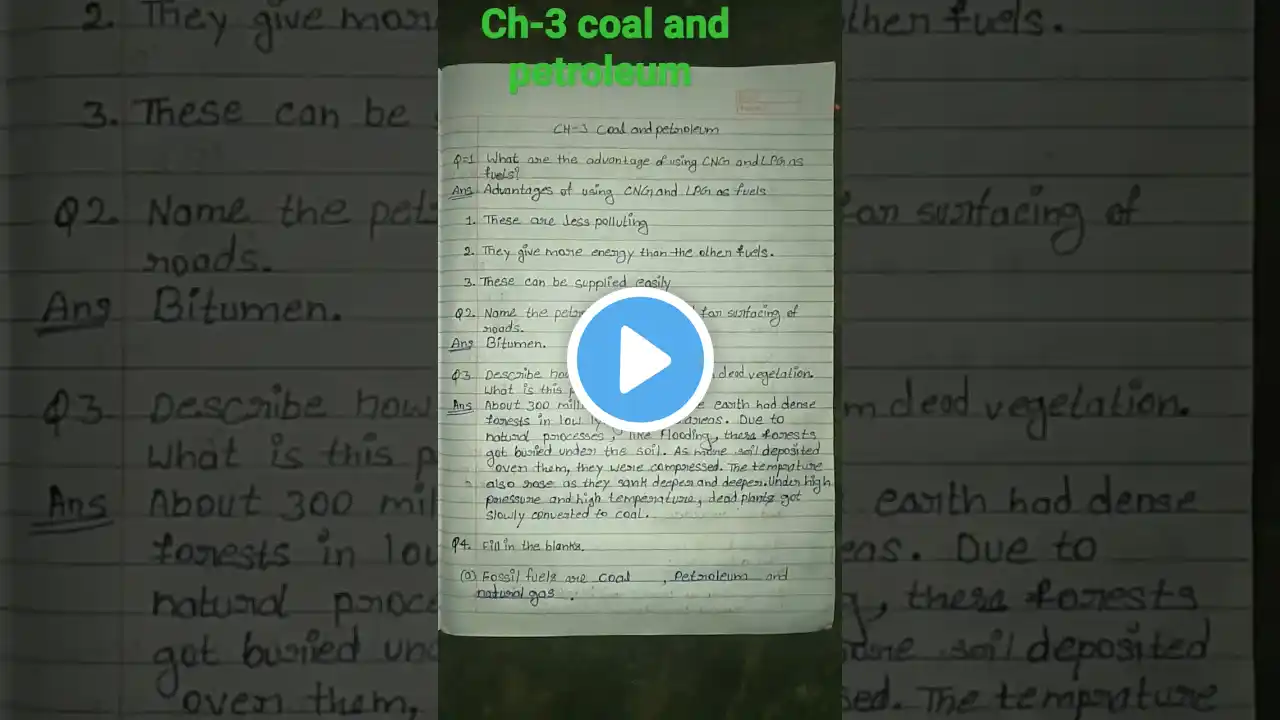 Ch-3 coal and
petroleum
CH-3 Coal and petroleum
Q=1 What are the advantage of using CNG and LPG as
fuels?
Ans Advantages of using CNG and LPG as fuels
1. These are less polluting
2. They give more energy than the other fuels.
3. These can be supplied easily
Q2. Name the for surfacing of
roads.
Ans Bitumen.
Q3 Describe dead vegetation.
What is this
Ans About 300 earth had dense
forests in low areas. Due to
natural processes, like flooding, these forests
got buried under the soil. As more soil deposited
over them, they were compressed. The temprature
also rose as they sank deeper and deeper. Under high
pressure and high temperature, dead plants got
slowly converted to coal.
Q4. Fill in the blanks.
(a) Fossil fuels are coal , Petroleum and
natural gas .